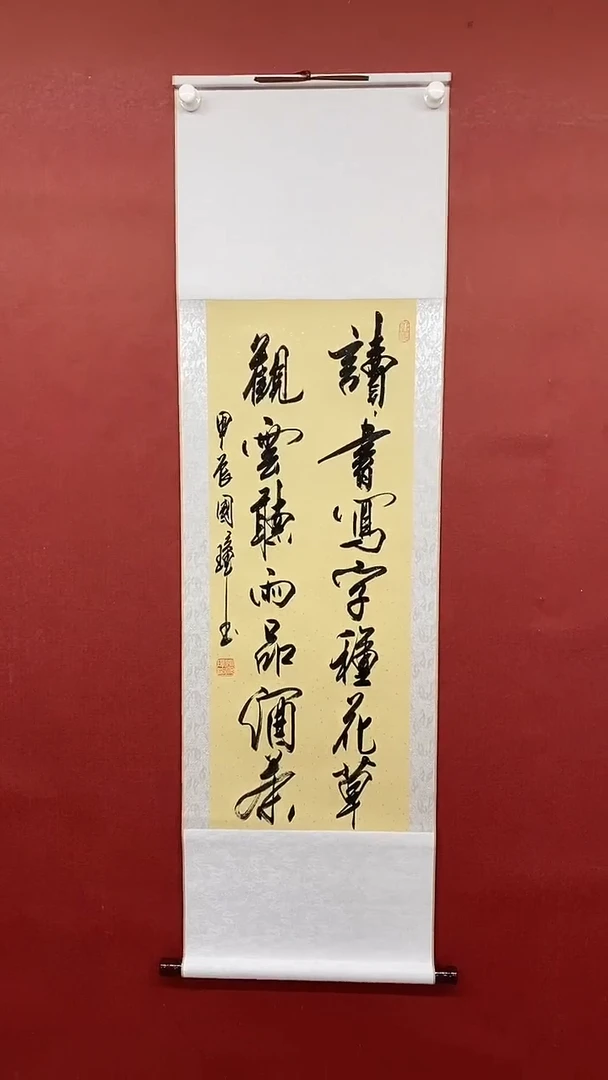 讀書寫字種花草
觀雲聽雨品酒茶
甲辰國瑾書